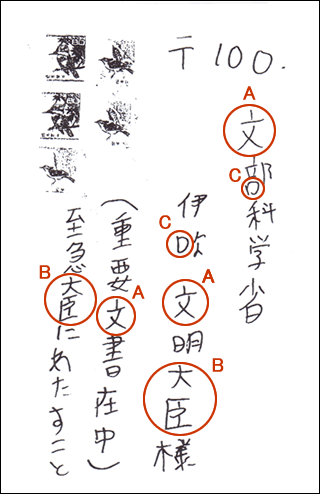 〒100.
A
C
文部科学省
C
A
B
伊吹文明大臣様
A
(重要文書在中)
B
至急大臣にわたすこと